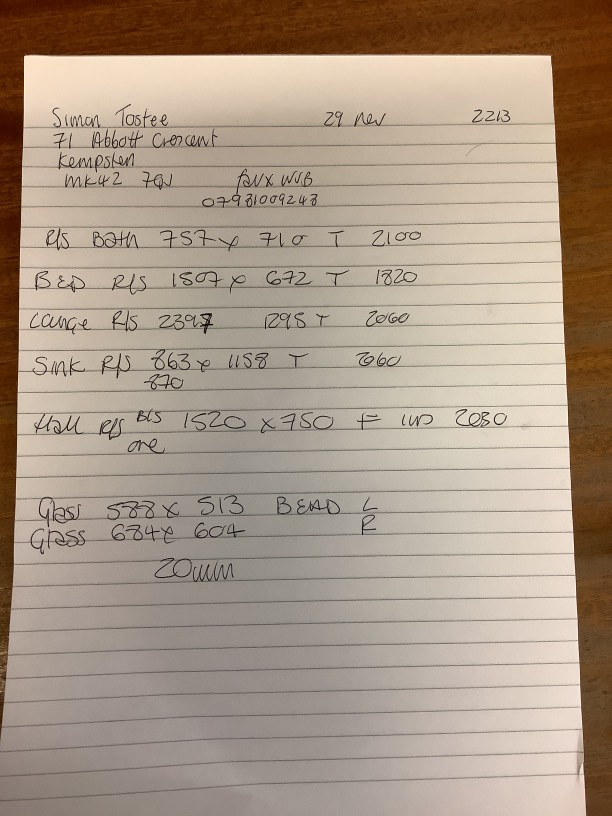 Simon Tostee 29 Nov 2213
71 Abbott Crescent
Kempston
MK42 7QJ faux WUB
07981009248
R/S Bath 757 x 710 T 2100
BED R/S 1507 x 672 T 1820
Lounge R/S 2397 1295 T 2060
Sink R/S 863 x 1158 T 2060
870
Hall R/S B/S 1520 x 750 F 2080
one
Glass 588 x 513 BEAD L
Glass 684 x 604 R
20mm